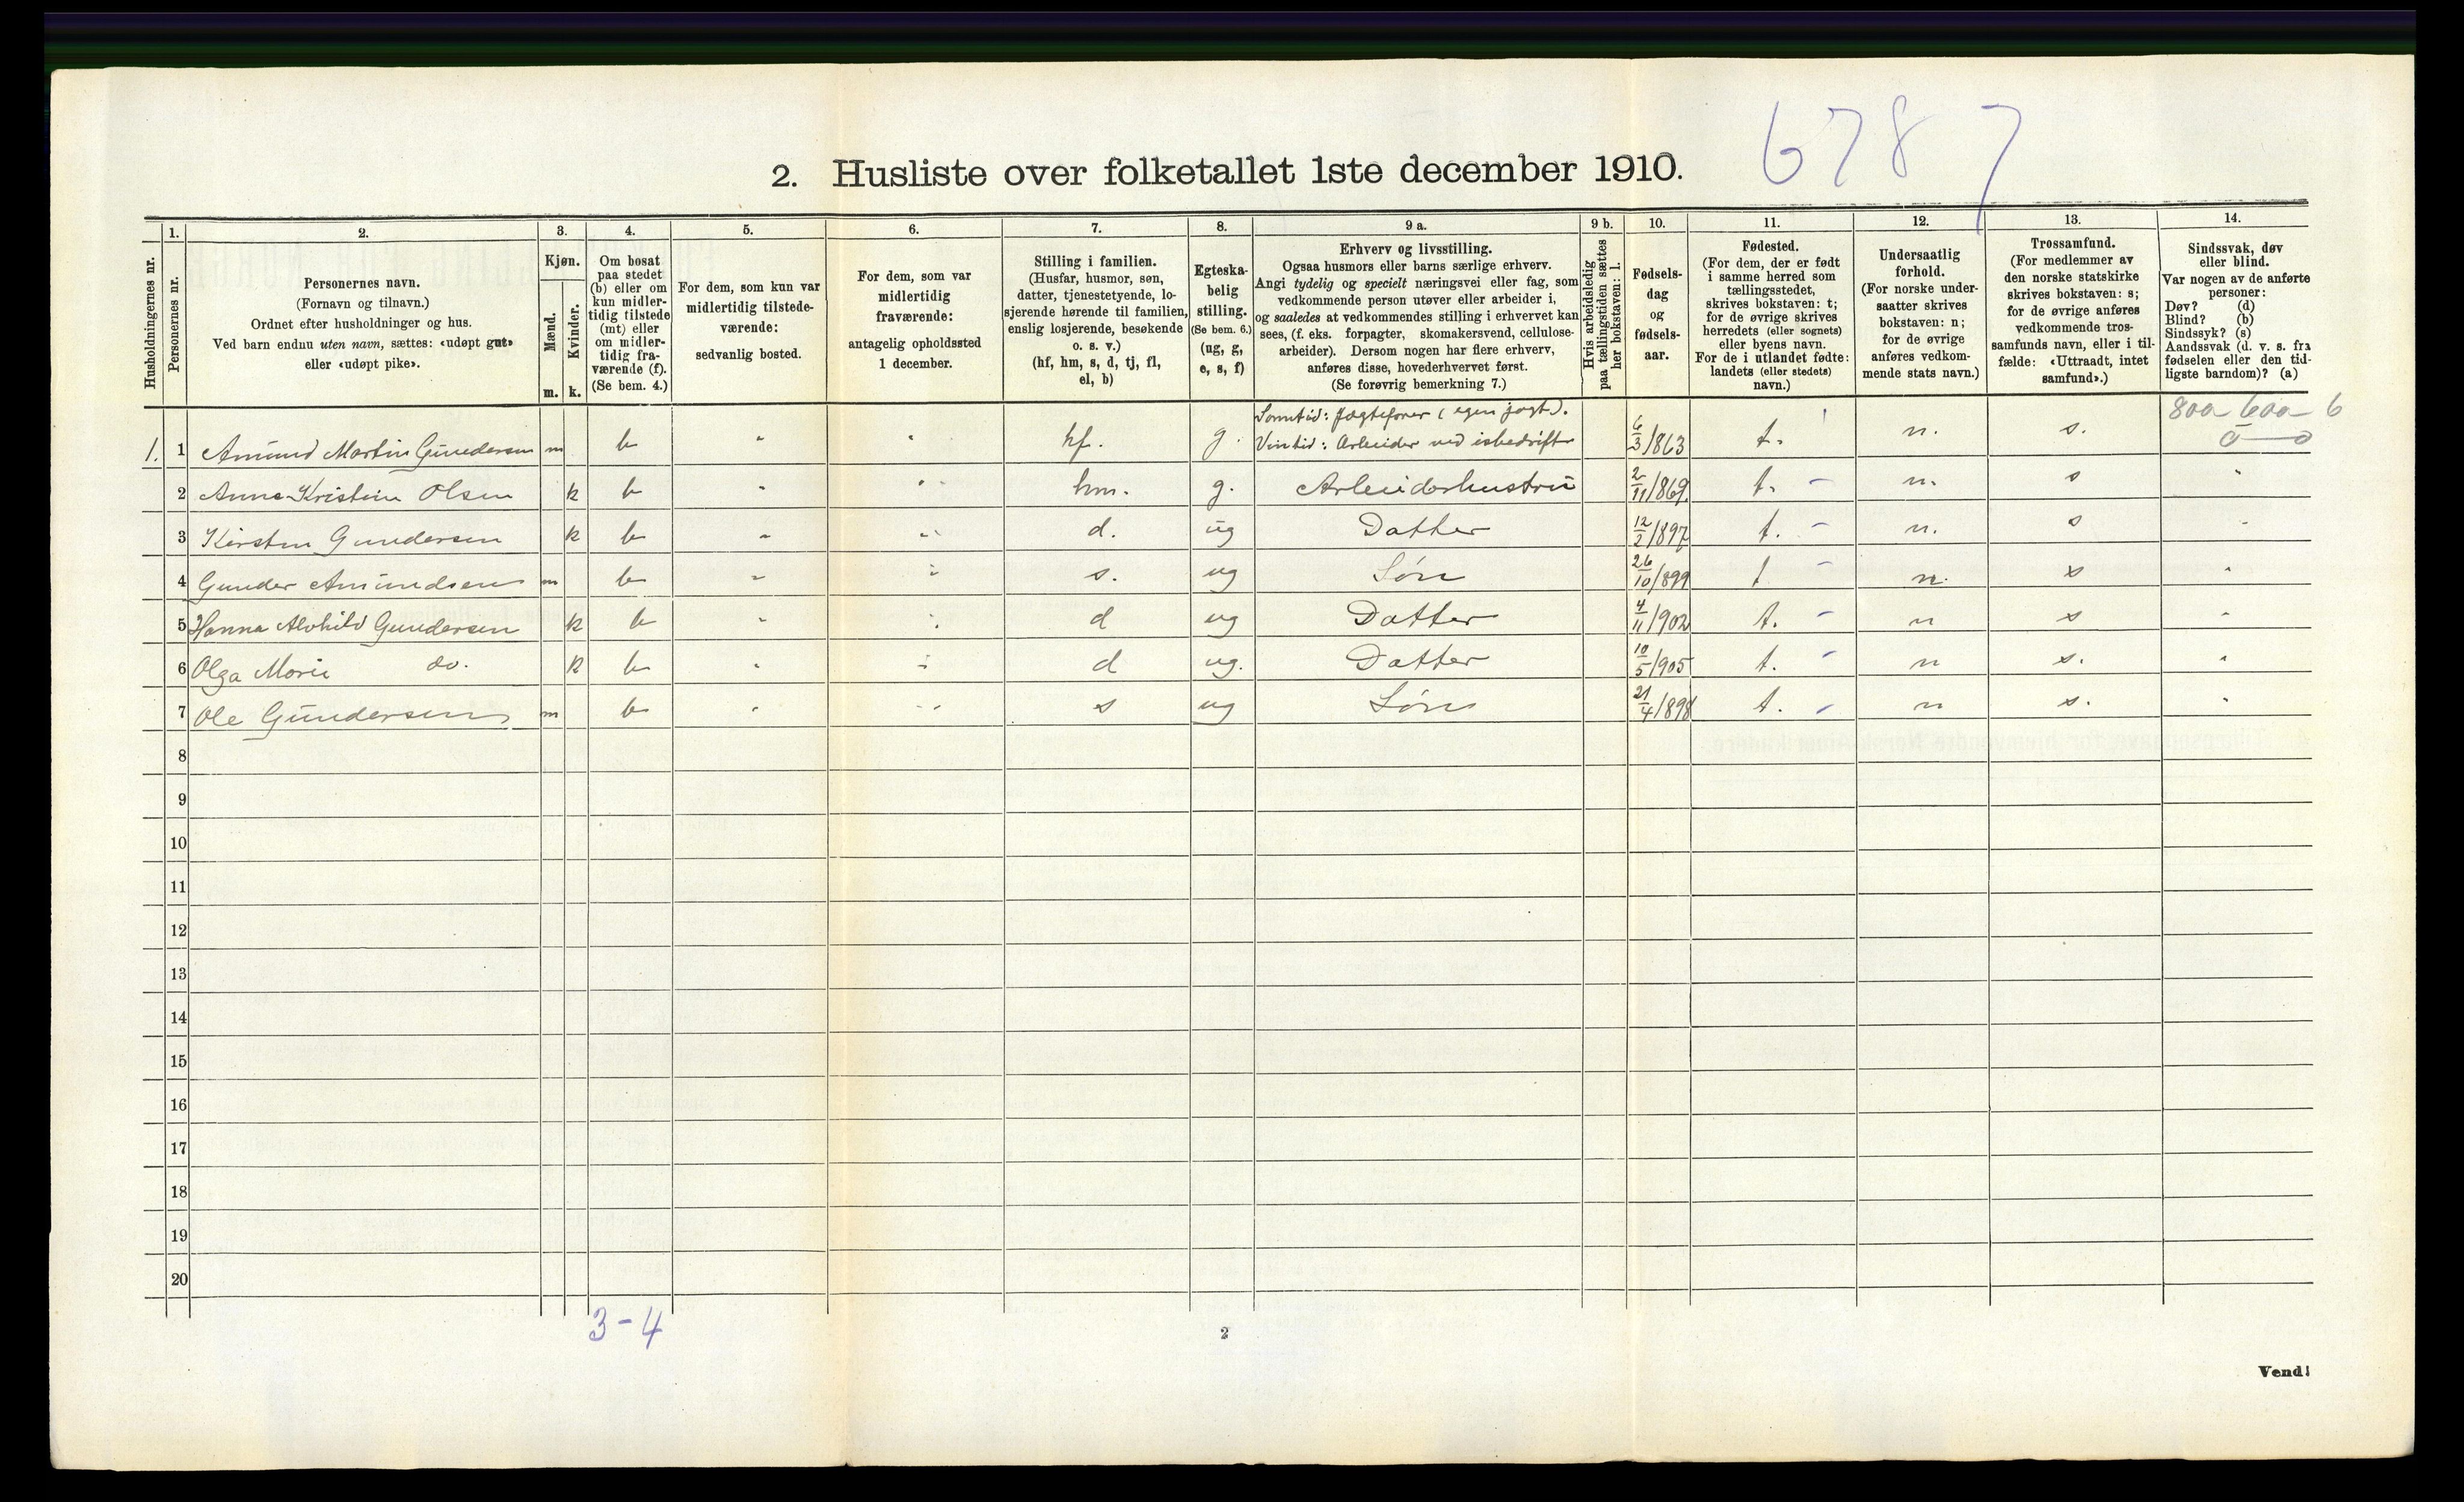 6787
2. Husliste over folketallet 1ste december 1910.
1. 2. 3. 4. 5. 6. 7. 8. 9 a. 9 b. 10. 11. 12. 13. 14.
Husholdningernes nr.
Personernes nr.
Personernes navn.
(Fornavn og tilnavn.)
Ordnet efter husholdninger og hus.
Ved barn endnu uten navn, sættes: «udøpt gut»
eller «udøpt pike».
Kjøn.
Mænd.
Kvinder.
m. k.
Om bosat
paa stedet
(b) eller om
kun midler-
tidig tilstede
(mt) eller
om midler-
tidig fra-
værende (f).
(Se bem. 4.)
For dem, som kun var
midlertidig tilstede-
værende:
sedvanlig bosted.
For dem, som var
midlertidig
fraværende:
antagelig opholdssted
1 december.
Stilling i familien.
(Husfar, husmor, søn,
datter, tjenestetyende, lo-
sjerende hørende til familien,
enslig losjerende, besøkende
o. s. v.)
(hf, hm, s, d, tj, fl,
el, b)
Egteska-
belig
stilling.
(Se bem. 6.)
(ug, g,
e, s, f)
Erhverv og livsstilling.
Ogsaa husmors eller barns særlige erhverv.
Angi tydelig og specielt næringsvei eller fag, som
vedkommende person utøver eller arbeider i,
og saaledes at vedkommendes stilling i erhvervet kan
sees, (f. eks. forpagter, skomakersvend, cellulose-
arbeider). Dersom nogen har flere erhverv,
anføres disse, hovederhvervet først.
(Se forøvrig bemerkning 7.)
Hvis arbeidsledig
paa tællingstiden sættes
her bokstaven: l.
Fødsels-
dag
og
fødsels-
aar.
Fødested.
(For dem, der er født
i samme herred som
tællingsstedet,
skrives bokstaven: t;
for de øvrige skrives
herredets (eller sognets)
eller byens navn.
For de i utlandet fødte:
landets (eller stedets)
navn.)
Undersaatlig
forhold.
(For norske under-
saatter skrives
bokstaven: n;
for de øvrige
anføres vedkom-
mende stats navn.)
Trossamfund.
(For medlemmer av
den norske statskirke
skrives bokstaven: s;
for de øvrige anføres
vedkommende tros-
samfunds navn, eller i til-
fælde: «Uttraadt, intet
samfund».)
Sindssvak, døv
eller blind.
Var nogen av de anførte
personer:
Døv? (d)
Blind? (b)
Sindssyk? (s)
Aandssvak (d. v. s. fra
fødselen eller den tid-
ligste barndom)? (a)
800 - 600 - 6
0 — 0
Somtid: Jagtefører (egen jagt).
1. 1 Amund Martin Gundersen m b " " hf. g. Vintid: Arbeider ved isbedrift 6/3/863 t. n. s.
2 Anne Kristine Olsen k b " " hm. g. Arbeiderhustru 2/11/869. t. - n. s "
3 Kirsten Gundersen k b " " d. ug Datter 12/2/897 t. - n. s "
4 Gunder Amundsen m b " " s. ug Søn 26/10/899 t - n. s "
5 Hanna Alvhild Gundersen k b " " d ug Datter 4/11/902 t. - n s "
6 Olga Marie do. k b " " d ug. Datter 10/5/905 t. - n s. "
7 Ole Gundersen m b " " s ug Søn 21/4/898 t. - n s. "
8
9
10
11
12
13
14
15
16
17
18
19
20
3-4
2
Vend!